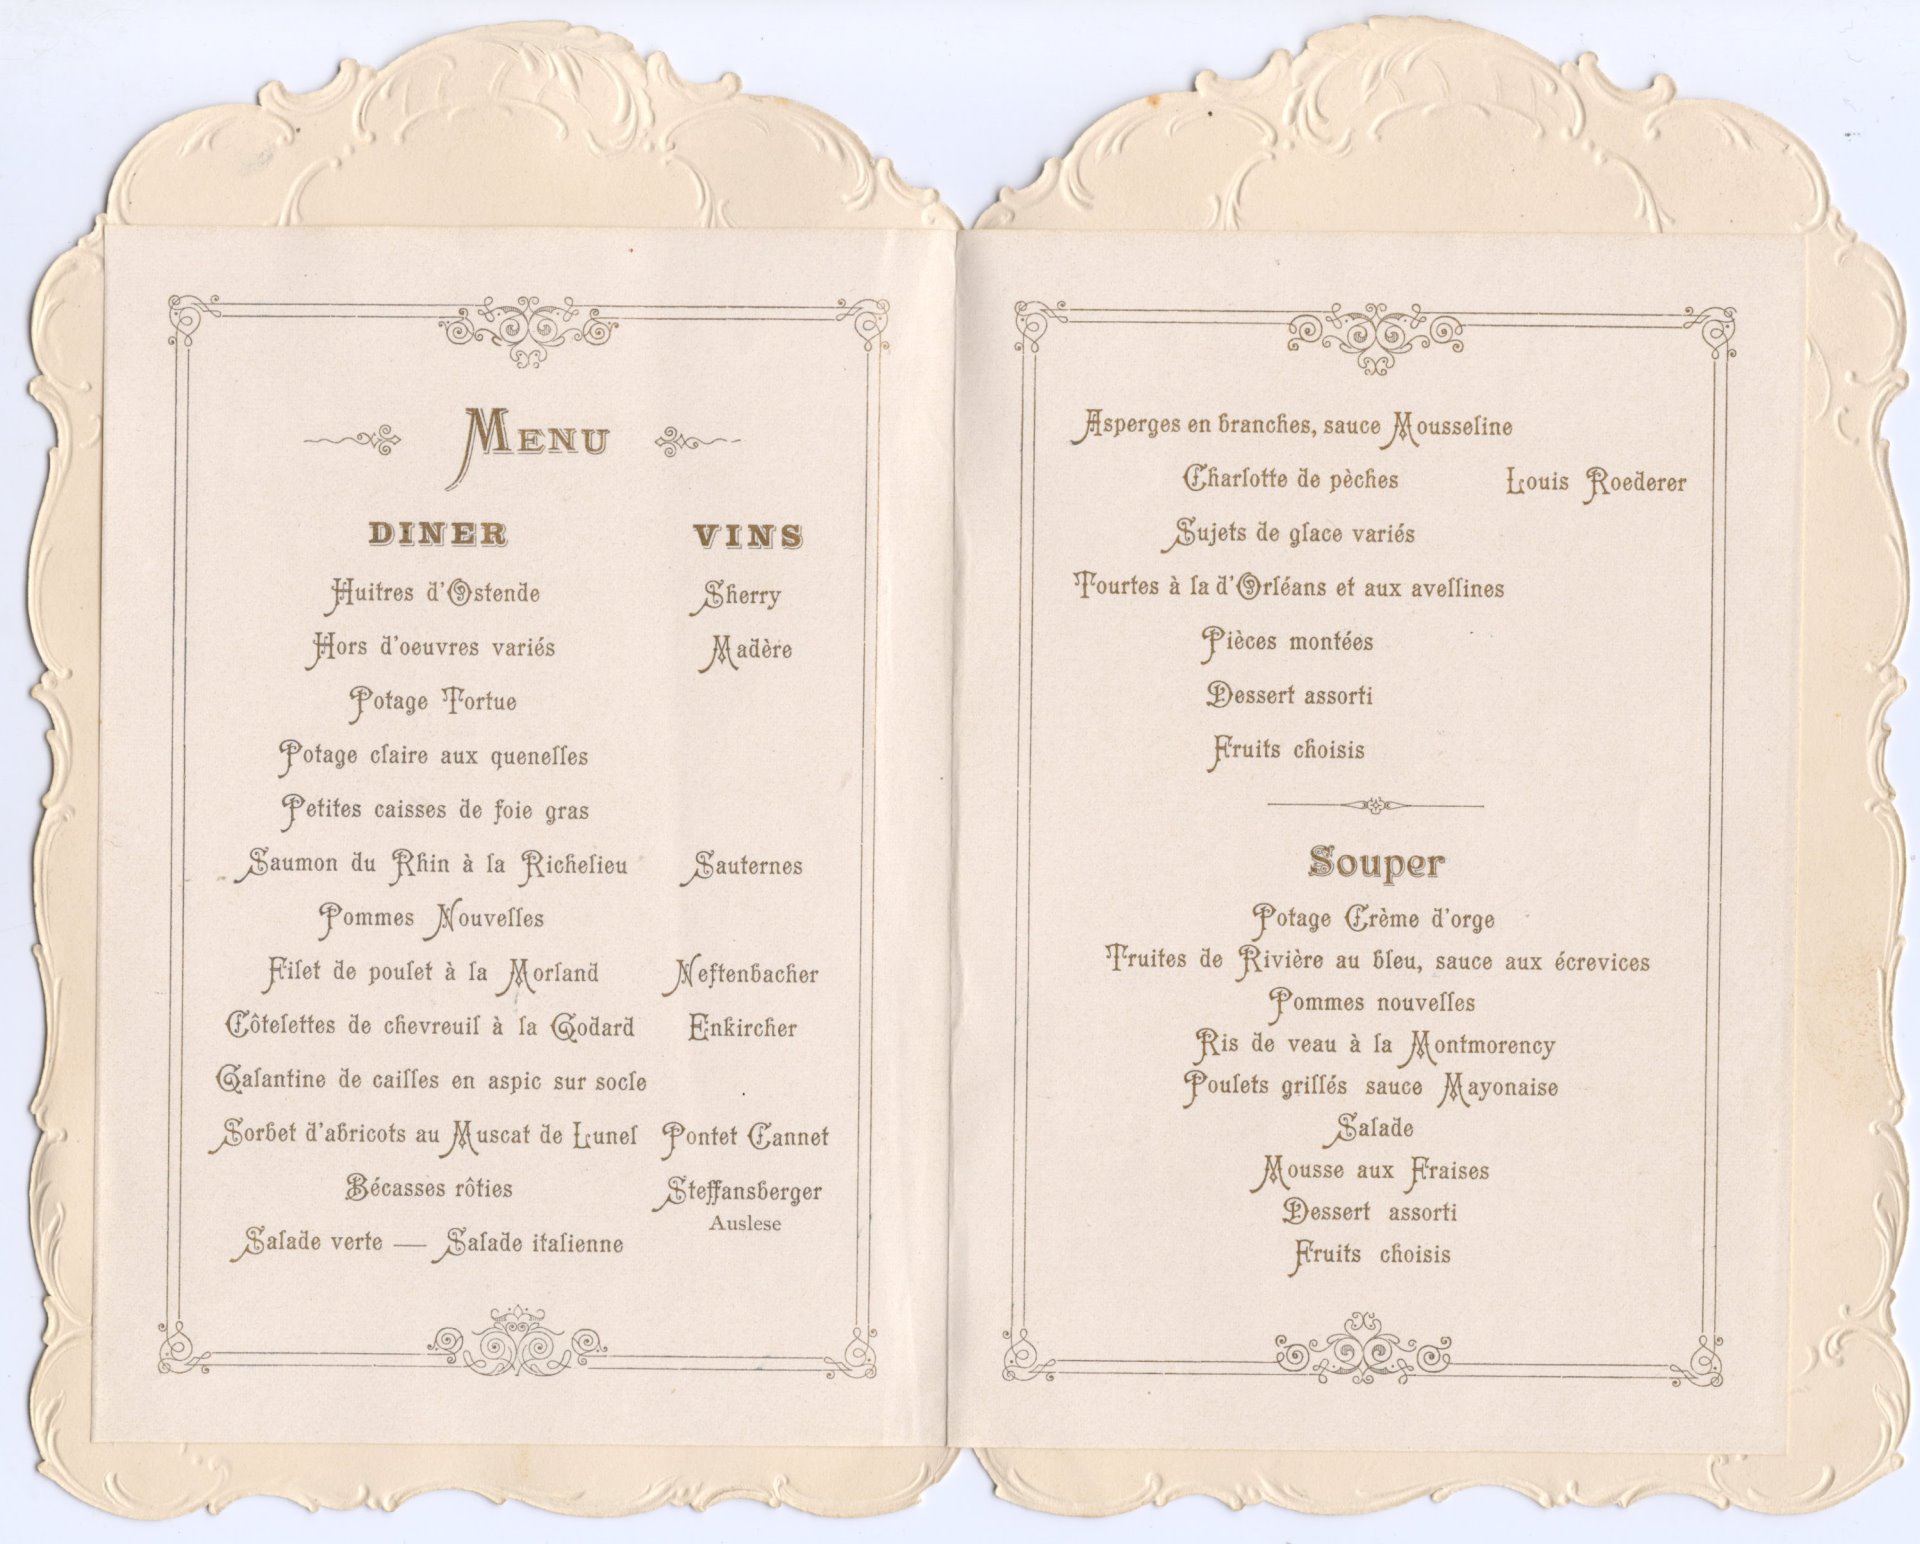 MENU
DINER VINS
Huitres d'Ostende Sherry
Hors d'oeuvres variés Madère
Potage Tortue
Potage claire aux quenelles
Petites caisses de foie gras
Saumon du Rhin à la Richelieu Sauternes
Pommes Nouvelles
Filet de poulet à la Morland Neftenbacher
Côtelettes de chevreuil à la Godard Enkircher
Galantine de cailles en aspic sur socle
Sorbet d'abricots au Muscat de Lunel Pontet Cannet
Bécasses rôties Steffansberger
Auslese
Salade verte — Salade italienne
Asperges en branches, sauce Mousseline
Charlotte de pèches Louis Roederer
Sujets de glace variés
Tourtes à la d'Orléans et aux avellines
Pièces montées
Dessert assorti
Fruits choisis
Souper
Potage Crème d'orge
Truites de Rivière au bleu, sauce aux écrevices
Pommes nouvelles
Ris de veau à la Montmorency
Poulets grillés sauce Mayonaise
Salade
Mousse aux Fraises
Dessert assorti
Fruits choisis